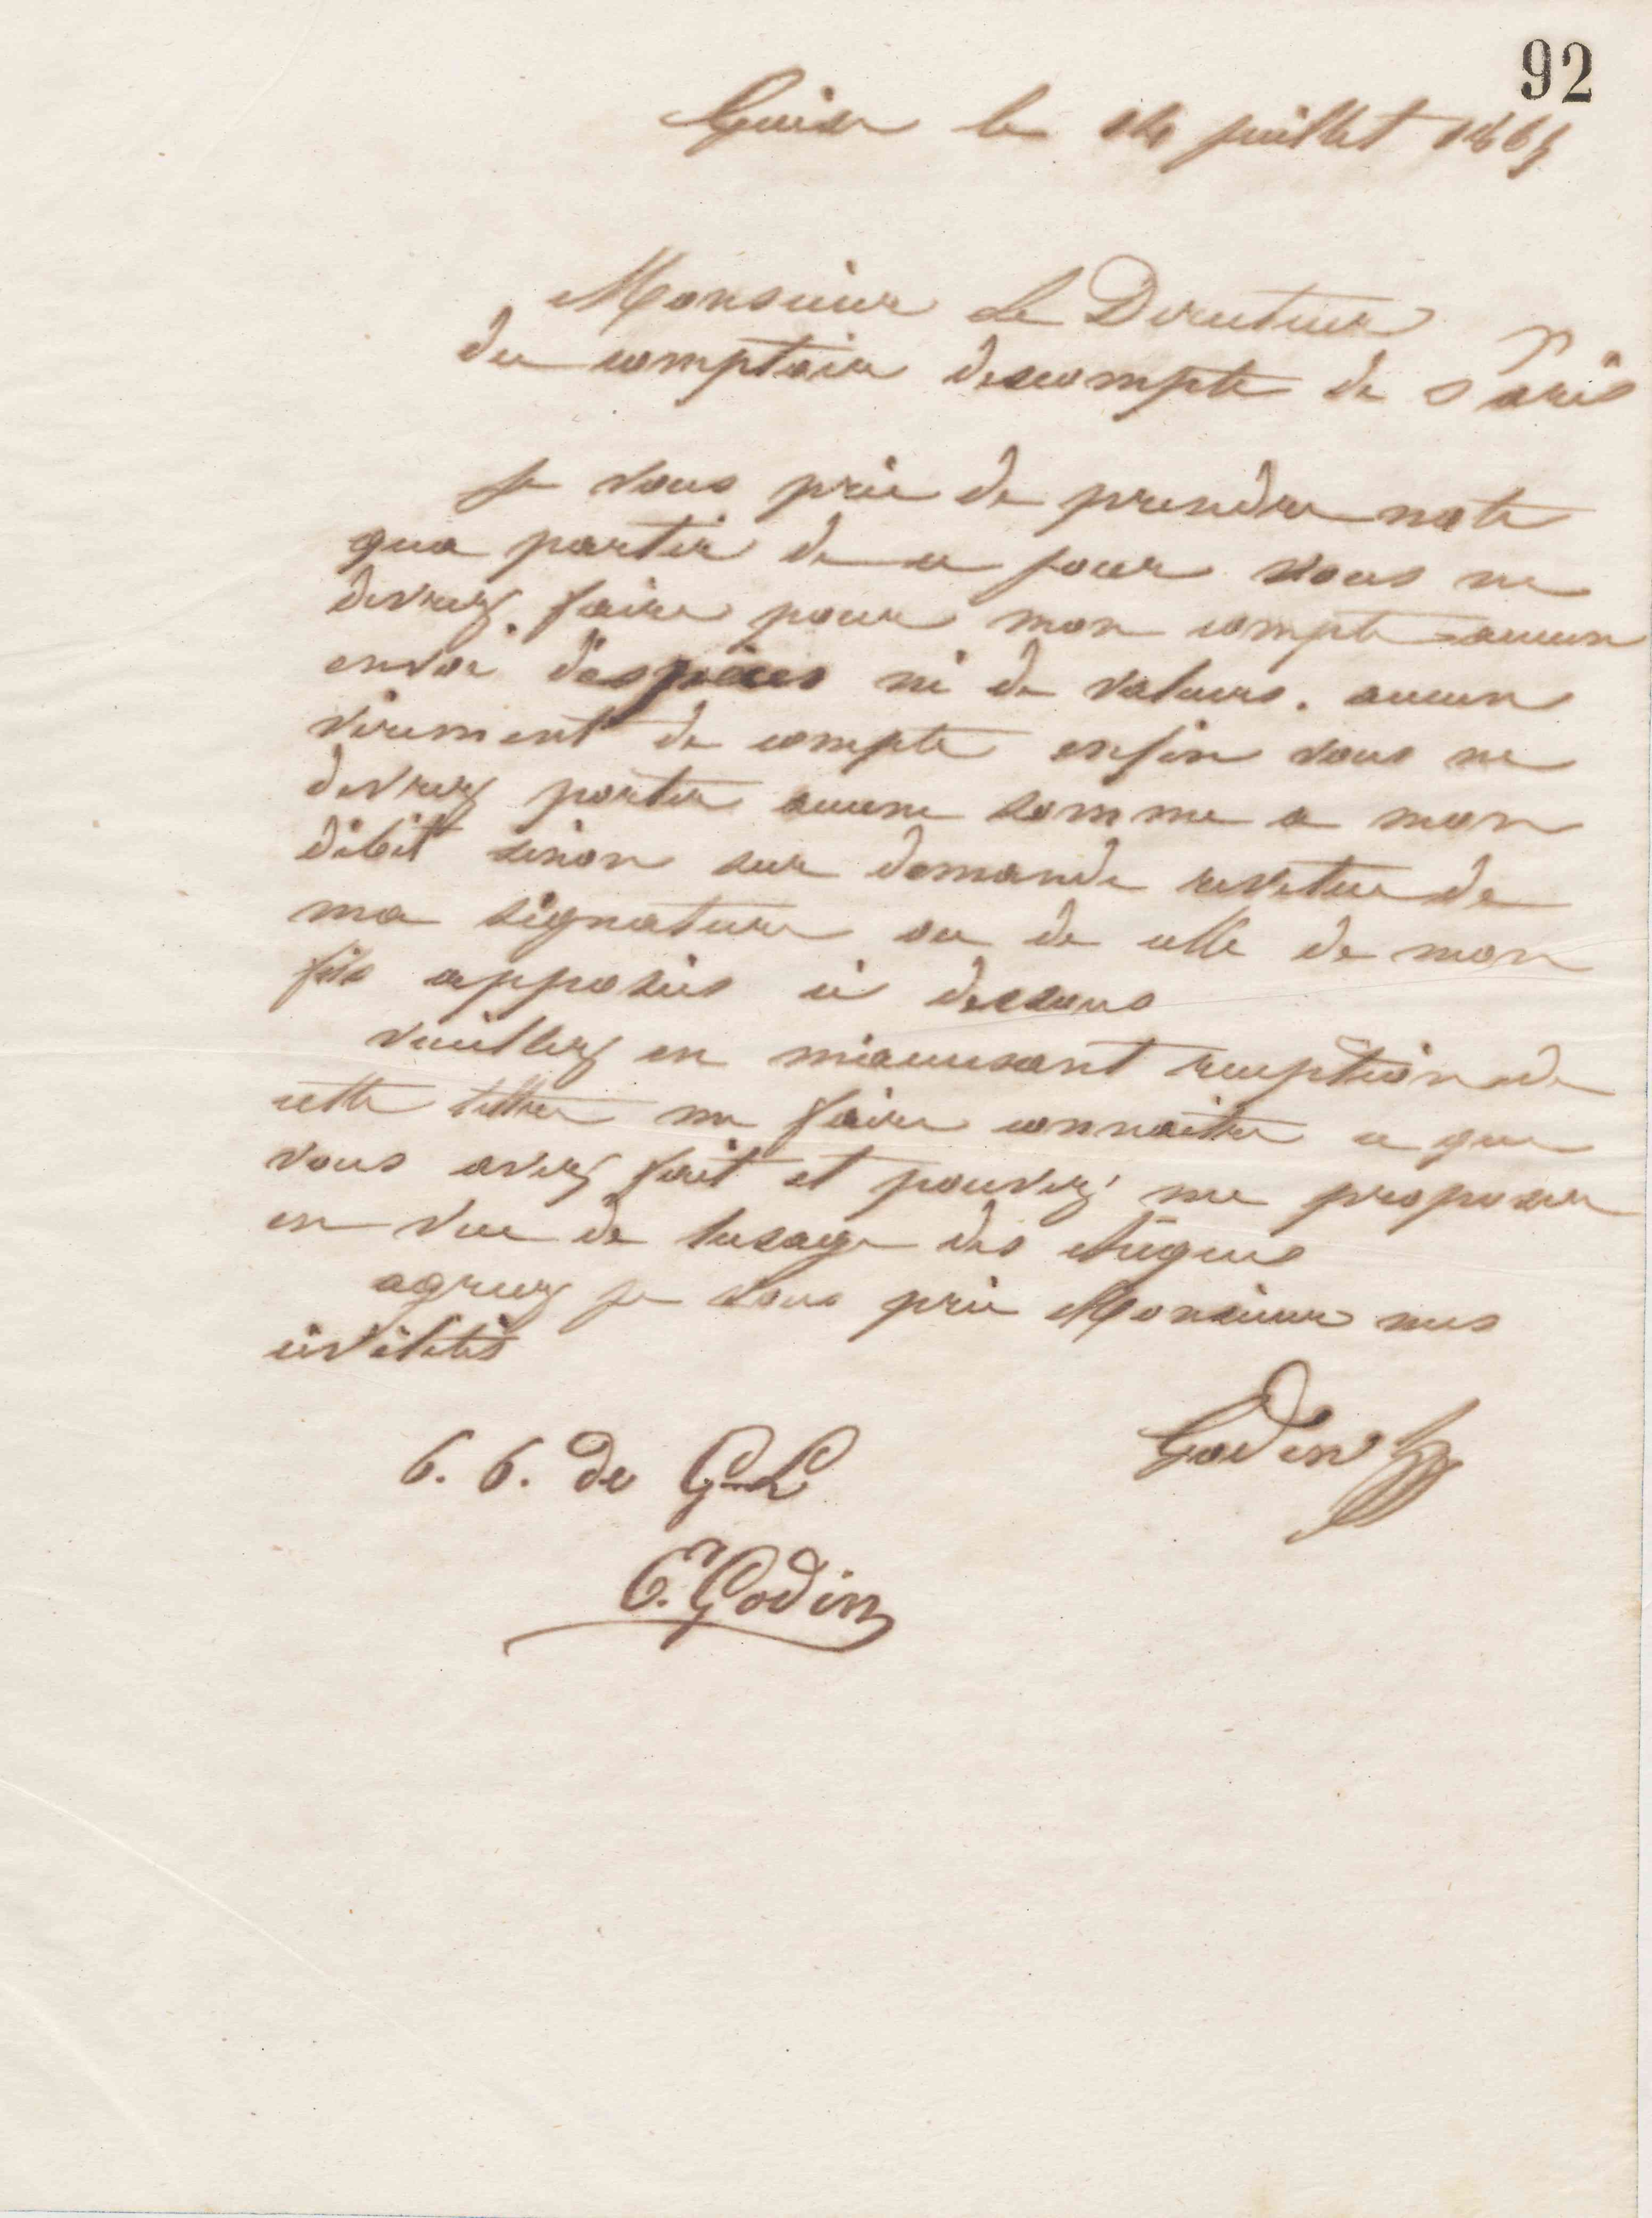 92
Guise le 14 juillet 1865
Monsieur Le Directeur
du comptoir descompte de Paris
je vous prie de prendre note
qua partir de ce jour vous ne
devrez faire pour mon compte aucun
envoi despèces ni de valeurs. aucun
virement de compte enfin vous ne
devrez porter aucune somme a mon
débit sinon sur demande revetue de
ma signature ou de celle de mon
fils apposées ci dessous
veuillez en m'accusant reception de
cette lettre me faire connaitre ce que
vous avez fait et pouvez me proposer
en vue de lusage des chèques
agréez je vous prie Monsieur mes
civilités
Godin
E. Godin